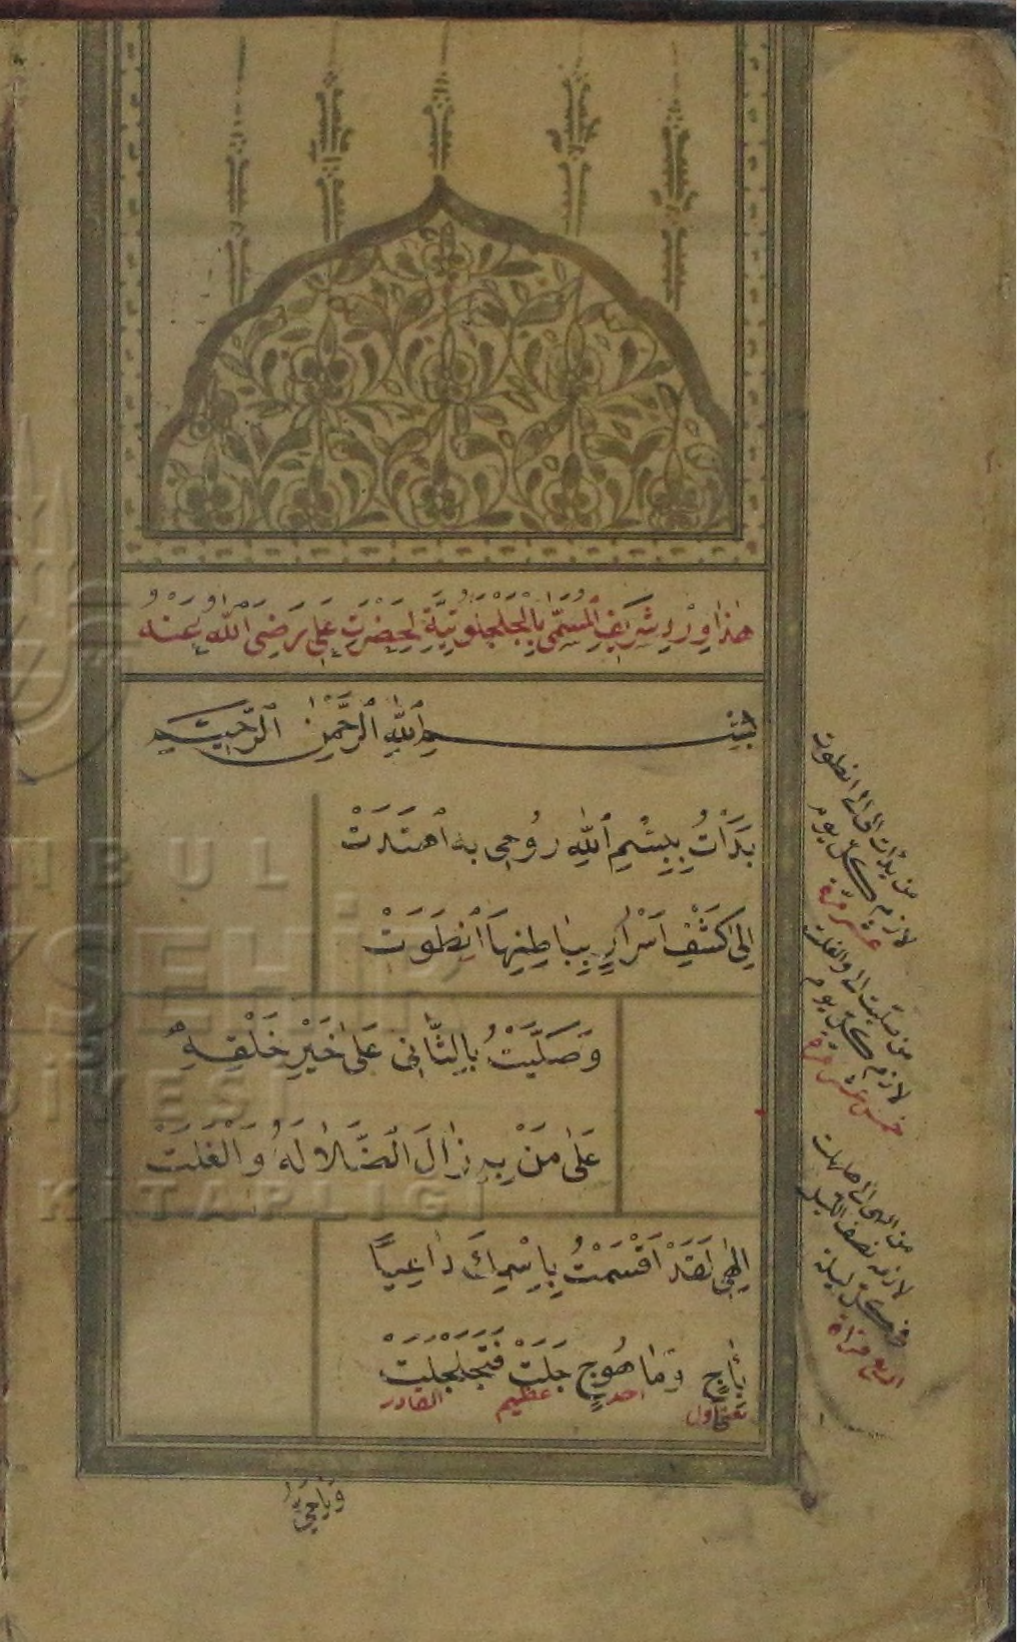 هٰذَا وِرْدِ شَرِيفِ الْمُسَمّٰى بِالْجَلْجَلُوتِيَّةِ لِحَضْرَتِ عَلِي رَضِىَ اللّٰهُ عَنْهُ
بِسْمِ اللّٰهِ الرَّحْمٰنِ الرَّحِيمِ
بَدَأْتُ بِبِسْمِ اللّٰهِ رُوحِى بِهِ اهْتَدَتْ
اِلٰى كَشْفِ اَسْرَارٍ بِبَاطِنِهَا انْطَوَتْ
وَصَلَّيْتُ بِالثَّانِى عَلٰى خَيْرِ خَلْقِهِ
عَلٰى مَنْ بِهِ زَالَ الضَّلَالَةُ وَالْغَلَتْ
اِلٰهِى لَقَدْ اَقْسَمْتُ بِاسْمِكَ دَاعِيًا
بِأٰجٍ وَمَاهُوجٍ جَلَتْ فَتَجَلْجَلَتْ
احد عظيم القادر
من بدأت الى انطوت
لازم كل يوم
عشر مرة
من صليت الى والغلت
لازم كل يوم
خمس عشر مرة
من الهى الى
لازم نصف الليل
فى كل ليلة
İSTANBUL
BÜYÜKŞEHİR
BELEDİYESİ
KİTAPLIĞI